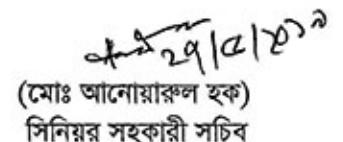 ২৭/৫/২০১৯
(মোঃ আনোয়ারুল হক)
সিনিয়র সহকারী সচিব